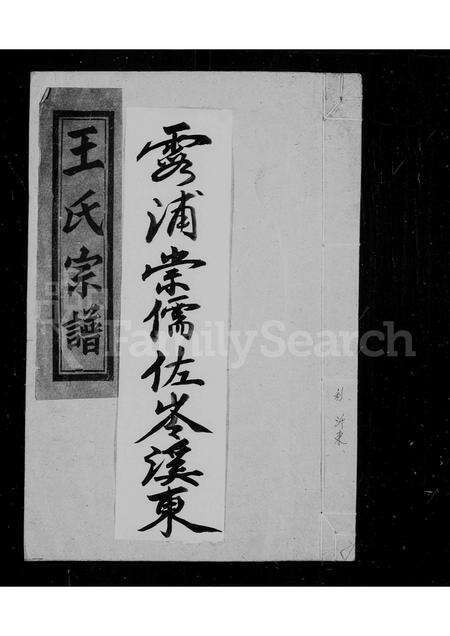 王氏宗譜
霞浦崇儒佐岑溪東
FamilySearch